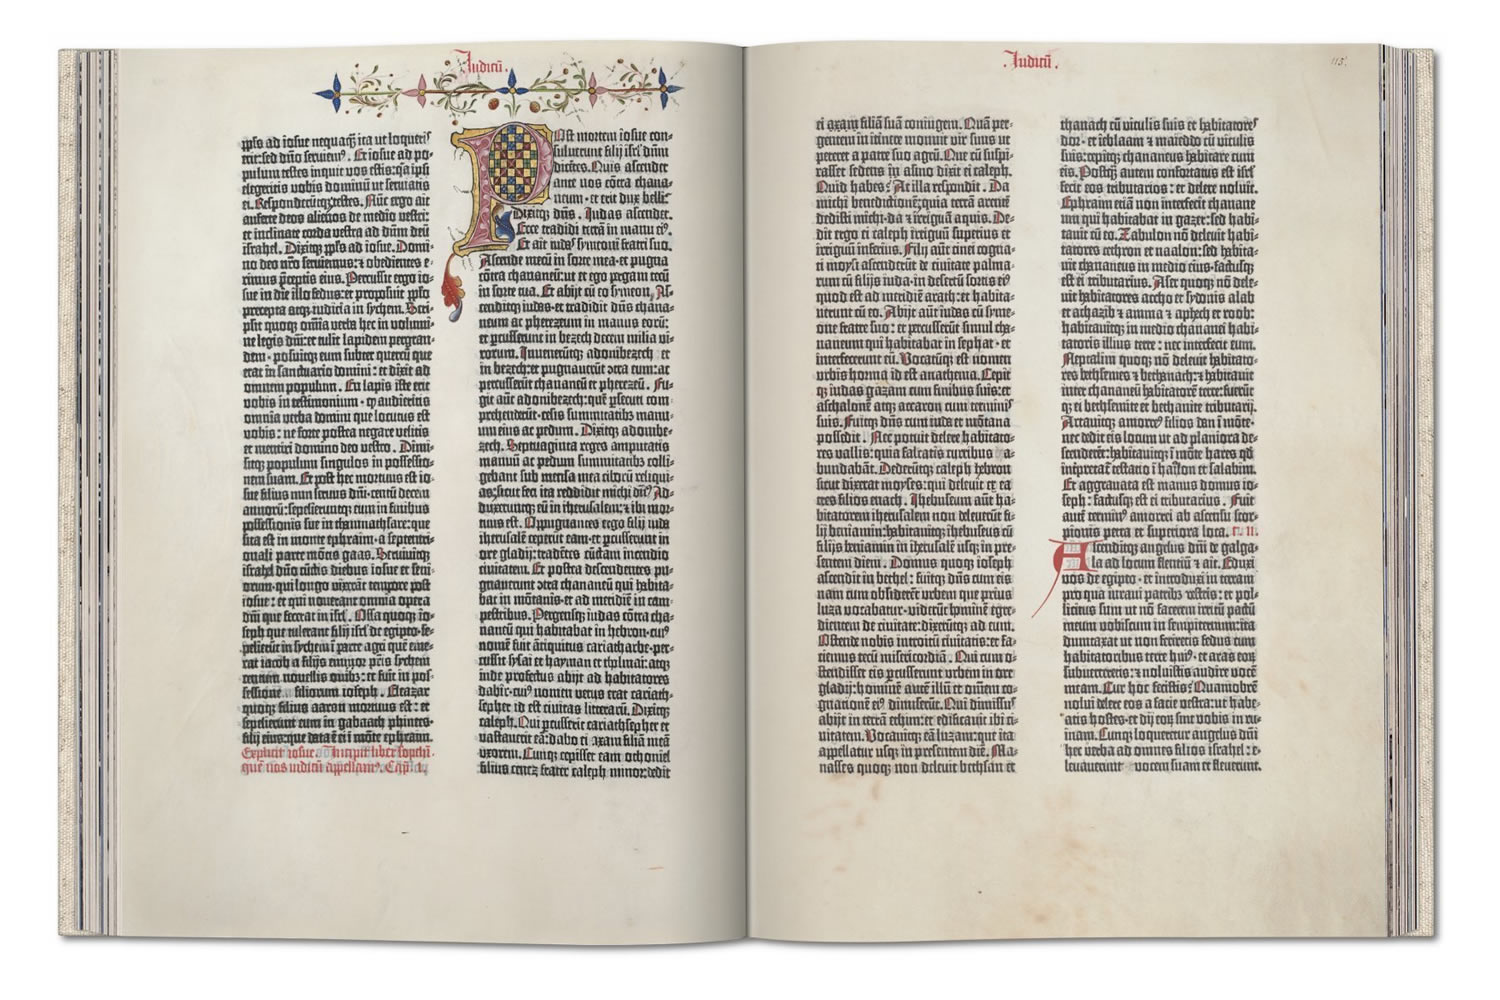 Iudicũ.
pp̃s ad iosue nequaq̃ ita ut loqueris
erit: sed dño seruiem⁹. Et iosue ad po-
pulum testes inquit vos estis: q̃a ipsi
elegeritis vobis dominũ ut seruiatis
ei. Responderũtq; testes. Nũc ergo ait
auferte deos alienos de medio vestri:
et inclinate corda vestra ad dñm deũ
israhel. Dixitq; pp̃s ad iosue. Domi-
no deo nr̃o seruiemus: ⁊ obedientes e-
rimus p̃ceptis eius. Percussit ergo io-
sue in die illo fedus: et proposuit pp̃lo
precepta atq; iudicia in sychem. Scri-
psit quoq; om̃ia verba hec in volumi-
ne legis dñi: et tulit lapidem pergran-
dem· posuitq; eum subter quercũ que
erat in sanctuario domini: et dixit ad
omnem populum. En lapis iste erit
vobis in testimonium· q̃ audieritis
omnia verba domini que locutus est
vobis: ne forte postea negare velitis
et mentiri domino deo vestro. Dimi-
sitq; populum singulos in possessio-
nem suam. Et post hec mortuus est io-
sue filius nun seruus dñi· centũ decem
annorũ: sepelieruntq; eum in finibus
possessionis sue in thamnathsare: que
sita est in monte ephraim· a septentri-
onali parte mõtis gaas. Seruiuitq;
israhel dño cũctis diebus iosue et seni-
orum· qui longo vixerãt tempore post
iosue: et qui nouerant omnia opera
dñi que fecerat in isrl̃. Ossa quoq; io-
seph que tulerant filij isrl̃ de egipto· se-
pelierũt in sychem ĩ parte agri quẽ eme-
rat iacob a filijs emmor p̃ris sychem
centum nouellis ouib⁹: et fuit in pos-
sessione filiorum ioseph. Eleazar
quoq; filius aaron mortuus est: et
sepelierunt eum in gabaath phinees
filij eius: que data ẽ ei ĩ mõte ephraim.
Explicit iosue. Incipit liber sopthĩ·
quẽ nos iudicũ appellam⁹. Cap̃. i.
POst mortem iosue con-
suluerunt filij isrl̃ dñm
dicẽtes. Quis ascendet
ante nos cõtra chana-
neum· et erit dux belli?
Dixitq; dñs. Iudas ascendet.
Ecce tradidi terrã in manu ei⁹.
Et ait iudas symeoni fratri suo.
Ascende mecũ in sorte mea· et pugna
cõtra chananeũ: ut et ego pergam tecũ
in sorte tua. Et abijt cũ eo symeon. As-
cenditq; iudas· et tradidit dñs chana-
neum ac pherezeum in manus eorũ:
et p̃cusserunt in bezech decem milia vi-
rorum. Inuenerũtq; adonibezech
in bezech: et pugnauerũt ↄtra eum: ac
percusserũt chananeũ et pherezeũ. Fu-
git aũt adonibezech: quẽ p̃secuti com-
prehenderũt· cesis summitatib; manu-
um eius ac pedum. Dixitq; adonibe-
zech. Septuaginta reges amputatis
manuũ ac pedum summitatib; colli-
gebant sub mensa mea ciborũ reliqui-
as: sicut feci ita reddidit michi dñs. Ad-
duxeruntq; eũ in iherusalem: ⁊ ibi mor-
tuus est. Oppugnantes ergo filij iuda
iherusalẽ ceperũt eam· et p̃cusserunt in
ore gladij: tradẽtes cũctam incendio
ciuitatem. Et postea descendentes pu-
gnauerunt ↄtra chananeũ qui habita-
bat in mõtanis· et ad meridiẽ in cam-
pestribus. Pergensq; iudas cõtra cha-
naneũ qui habitabat in hebron· cui⁹
nomẽ fuit ãtiquitus cariatharbe· per-
cussit sysai et hayman et tholmai: atq;
inde profectus abijt ad habitatores
dabir· cui⁹ nomen vetus erat cariath-
sepher id est ciuitas litterarũ. Dixitq;
caleph. Qui p̃cusserit cariathsepher et
vastauerit eã: dabo ei axam filiã meã
vxorem. Cumq; cepisset eam othoniel
filius cenez frater caleph minor: dedit
.Iudicũ.
115.
ei axam filiã suã coniugem. Quã per-
gentem in itinere monuit vir suus ut
peteret a patre suo agrũ. Que cũ suspi-
rasset sedens in asino dixit ei caleph.
Quid habes? At illa respondit. Da
michi benedictionẽ: quia terrã arentẽ
dedisti michi· da ⁊ irriguã aquis. De-
dit ergo ei caleph irriguũ superius et
irriguũ inferius. Filij aũt cinei cogna-
ti moysi ascenderũt de ciuitate palma-
rum cũ filijs iuda· in desertũ sortis ei⁹
quod est ad meridiẽ arath: et habita-
uerunt cũ eo. Abijt aũt iudas cũ syme-
one fratre suo: et percusserũt simul cha-
naneum qui habitabat in sephat· et
interfecerunt eũ. Vocatũq; est nomen
vrbis horma id est anathema. Cepit
q; iudas gazam cum finibus suis: et
aschalonẽ atq; accaron cum terminis
suis. Fuitq; dñs cum iuda et mõtana
possedit. Nec potuit delere habitato-
res vallis: quia falcatis curribus a-
bundabãt. Dederũtq; caleph hebron
sicut dixerat moyses: qui deleuit ex ea
tres filios enach. Ihebuseum aũt ha-
bitatorem iherusalem non deleuerũt fi-
lij beniamin: habitauitq; ihebuseus cũ
filijs beniamin in iherusalẽ usq; in pre-
sentem diem. Domus quoq; ioseph
ascendit in bethel: fuitq; dñs cum eis
nam cum obsiderẽt vrbem que prius
luza vocabatur· viderũt hominẽ egre-
dientem de ciuitate: dixerũtq; ad eum.
Ostende nobis introitũ ciuitatis: et fa-
ciemus tecũ misericordiã. Qui cum o-
stendisset eis p̃cusserunt vrbem in ore
gladij: hominẽ autẽ illũ et omnẽ co-
gnationẽ ei⁹ dimiserũt. Qui dimissus
abijt in terrã ethim: et edificauit ibi ci-
uitatem. Vocauitq; eã luzam: que ita
appellatur usq; in presentem diẽ. Ma-
nasses quoq; non deleuit bethsan et
thanach cũ viculis suis et habitatores
dor· et ieblaam ⁊ mageddo cũ viculis
suis: cepitq; chananeus habitare cum
eis. Postq̃ autem confortatus est isrl̃
fecit eos tributarios: et delere noluit.
Ephraim eciã non interfecit chanane-
um qui habitabat in gazer: sed habi-
tauit cũ eo. Zabulon nõ deleuit habi-
tatores cethron et naalon: sed habita-
uit chananeus in medio eius· factusq;
est ei tributarius. Aser quoq; nõ dele-
uit habitatores accho et sydonis alab
et achazib ⁊ amma ⁊ aphech et roob:
habitauitq; in medio chananei habi-
tatoris illius terre: nec interfecit eum.
Neptalim quoq; nõ deleuit habitato-
res bethsemes ⁊ bethanach: ⁊ habitauit
inter chananeũ habitatorẽ terre: fuerũt
q; ei bethsemite et bethanite tributarij.
Artauitq; amorre⁹ filios dan ĩ mõte·
nec dedit eis locum ut ad planiora de-
scenderẽt: habitauitq; ĩ mõte hares qđ
ĩnterp̃etat̃ testatio ĩ haylon et salabim.
Et aggrauata est manus domus io-
seph: factusq; est ei tributarius. Fuit
aũt termin⁹ amorrei ab ascensu scor-
pionis petra et superiora loca. C. II.
Ascenditq; angelus dñi de galga-
la ad locum flentiũ ⁊ ait. Eduxi
vos de egipto· et introduxi in terram
pro qua iuraui patrib; vestris: et pol-
licitus sum ut nõ facerem irritũ pactũ
meum vobiscum in sempiternum: ita
dumtaxat ut non feriretis fedus cum
habitatoribus terre hui⁹· et aras eorũ
subuerteretis: ⁊ noluistis audire vocẽ
meam. Cur hoc fecistis? Quamobrẽ
nolui delere eos a facie vestra: ut habe-
atis hostes· et dij eorũ sint vobis in ru-
inam. Cumq; loqueretur angelus dñi
hec verba ad omnes filios israhel: e-
leuauerunt vocem suam et fleuerunt.